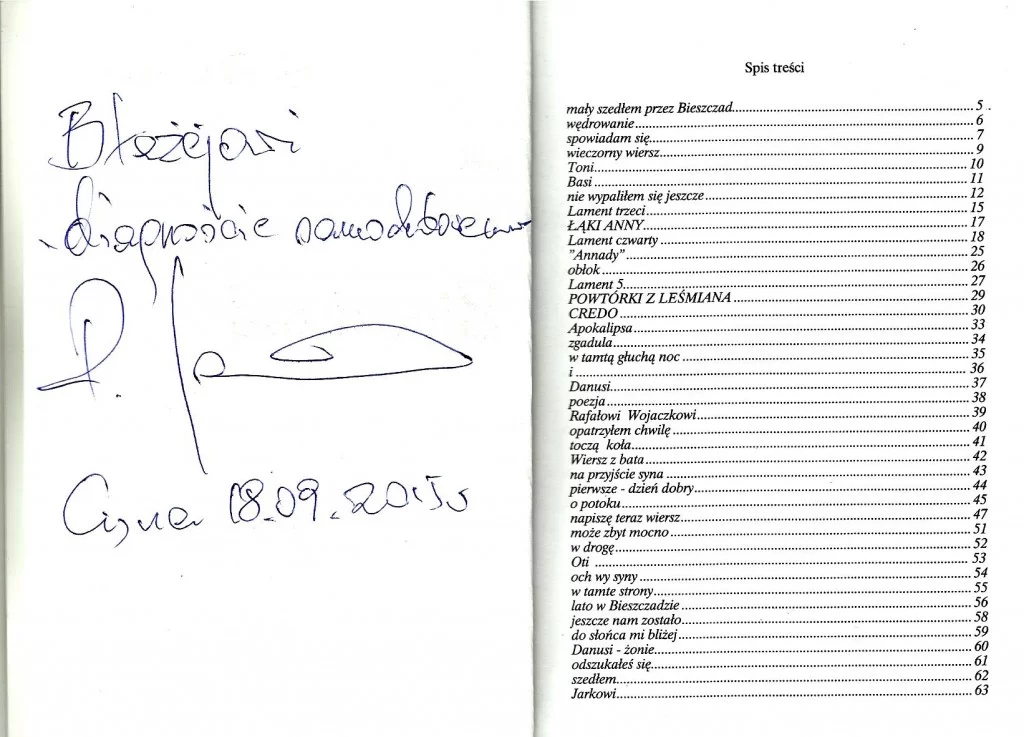 Błażejowi
diagnoście samochodowemu
P.
Cisna 18.09.2015r
Spis treści
mały szedłem przez Bieszczad 5
wędrowanie 6
spowiadam się 7
wieczorny wiersz 9
Toni 10
Basi 11
nie wypaliłem się jeszcze 12
Lament trzeci 15
ŁĄKI ANNY 17
Lament czwarty 18
"Annady" 25
obłok 26
Lament 5 27
POWTÓRKI Z LEŚMIANA 29
CREDO 30
Apokalipsa 33
zgadula 34
w tamtą głuchą noc 35
i 36
Danusi 37
poezja 38
Rafałowi Wojaczkowi 39
opatrzyłem chwilę 40
toczą koła 41
Wiersz z bata 42
na przyjście syna 43
pierwsze - dzień dobry 44
o potoku 45
napiszę teraz wiersz 47
może zbyt mocno 51
w drogę 52
Oti 53
och wy syny 54
w tamte strony 55
lato w Bieszczadzie 56
jeszcze nam zostało 58
do słońca mi bliżej 59
Danusi - żonie 60
odszukałeś się 61
szedłem 62
Jarkowi 63